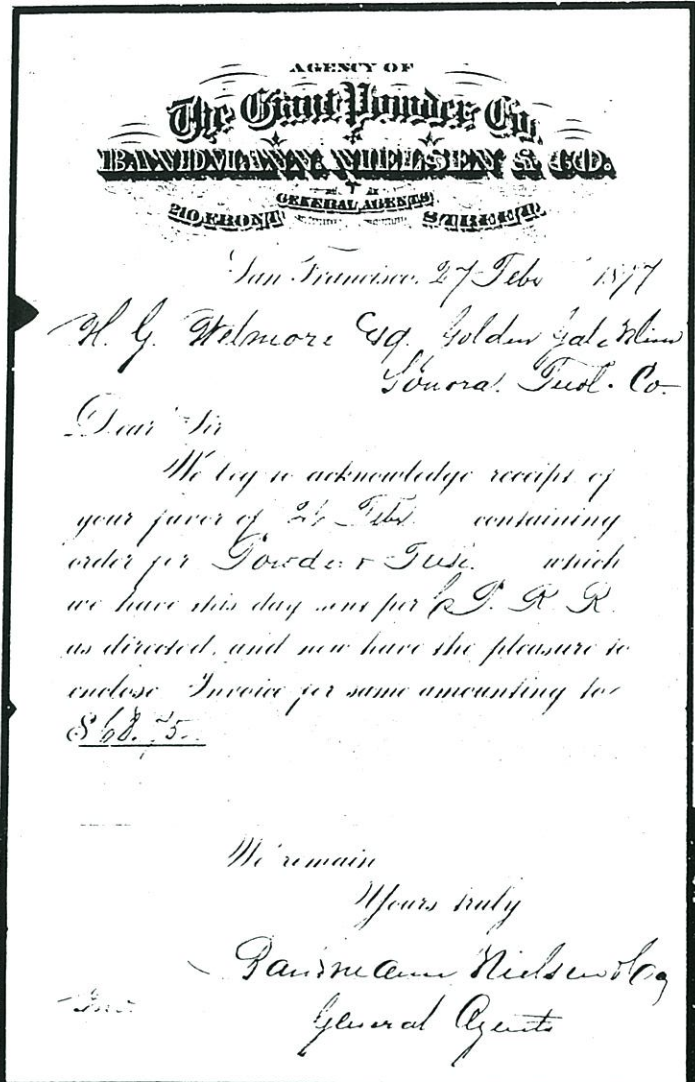 AGENCY OF
The Giant Powder Co.
BANDMANN, NIELSEN & CO.
GENERAL AGENTS
210 FRONT STREET.
San Francisco, 27 Feby 1877
H. G. Wetmore Esq. Golden Gate Mine
Sonora. Tuol. Co.
Dear Sir
We beg to acknowledge receipt of
your favor of Feby containing
order for Powder & Fuse which
we have this day sent per C. P. R. R.
as directed, and now have the pleasure to
enclose Invoice for same amounting to
$68.75.
We remain
Yours truly
Bandmann Nielsen & Co
General Agents